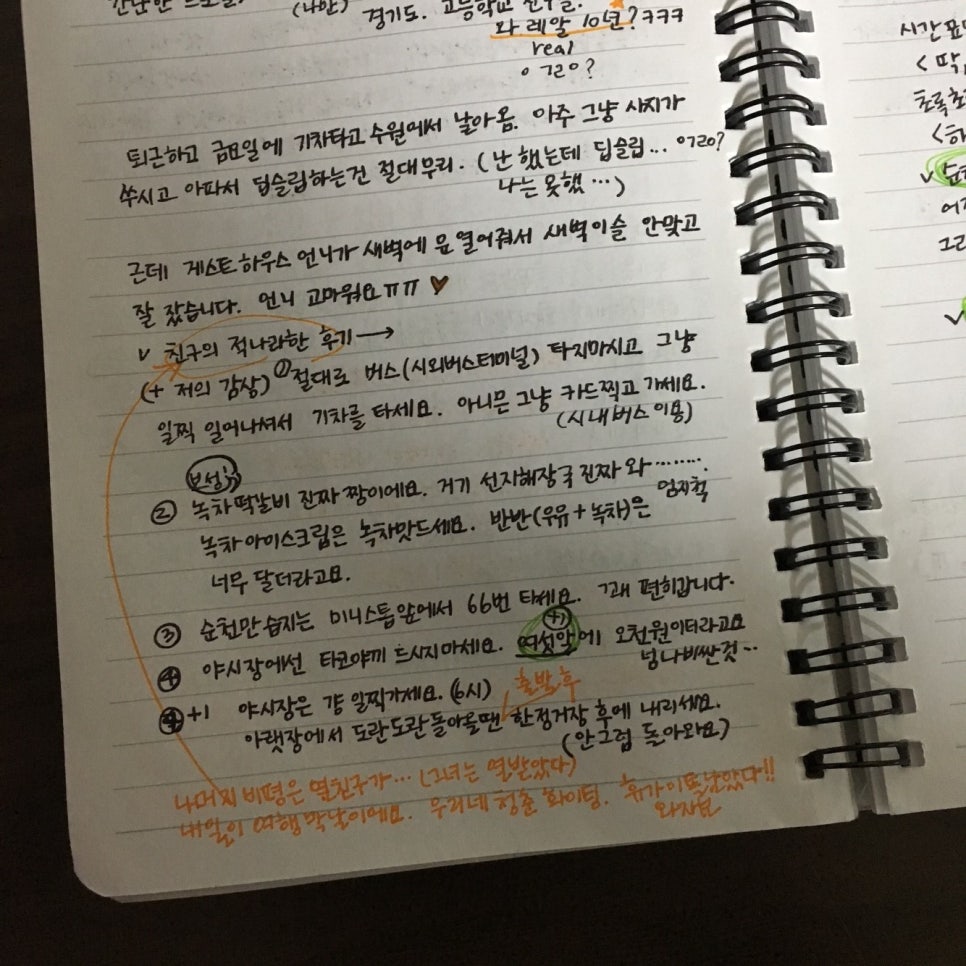 (나만)
경기도. 고등학교 친구들.
와 레알 10년? ㅋㅋㅋ
real
ㅇㄱㄹㅇ?
퇴근하고 금요일에 기차타고 수원에서 날아옴. 아주 그냥 사지가
쑤시고 아파서 딥슬립하는건 절대무리. (난 했는데 딥슬립... ㅇㄱㄹㅇ?
나는 못했...)
근데 게스트하우스 언니가 새벽에 문 열어줘서 새벽이슬 안맞고
잘 잤습니다. 언니 고마워요ㅠㅠ ♥
v 친구의 적나라한 후기 →
(+ 저의 감상) ① 절대로 버스(시외버스터미널) 타지마시고 그냥
일찍 일어나셔서 기차를 타세요. 아니믄 그냥 카드찍고 가세요.
(시내버스 이용)
보성
② 녹차떡갈비 진짜 짱이에요. 거기 선지해장국 진짜 와........
엄지척
녹차아이스크림은 녹차맛드세요. 반반(우유+녹차)은
너무 달더라고요.
③ 순천만습지는 미니스톱앞에서 66번 타세요. 그래 편히갑니다.
④ 야시장에선 타코야끼 드시지마세요. 여섯알에 오천원이더라고요
(+1)
넘나비싼것..
④+1 야시장은 걍 일찍가세요. (6시)
출발 후
아랫장에서 도란도란돌아올땐 한정거장 후에 내리세요.
(안그럼 돌아와요)
나머지 비평은 옆친구가... (그녀는 열받았다)
내일이 여행막날이에요. 우리네 청춘 화이팅. 휴가이또남았다!!